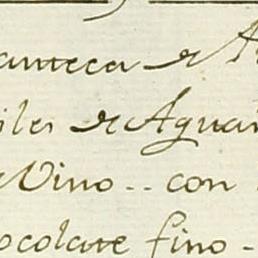 anteca de A
iles de Agua
Vino.. con
ocolate fino -